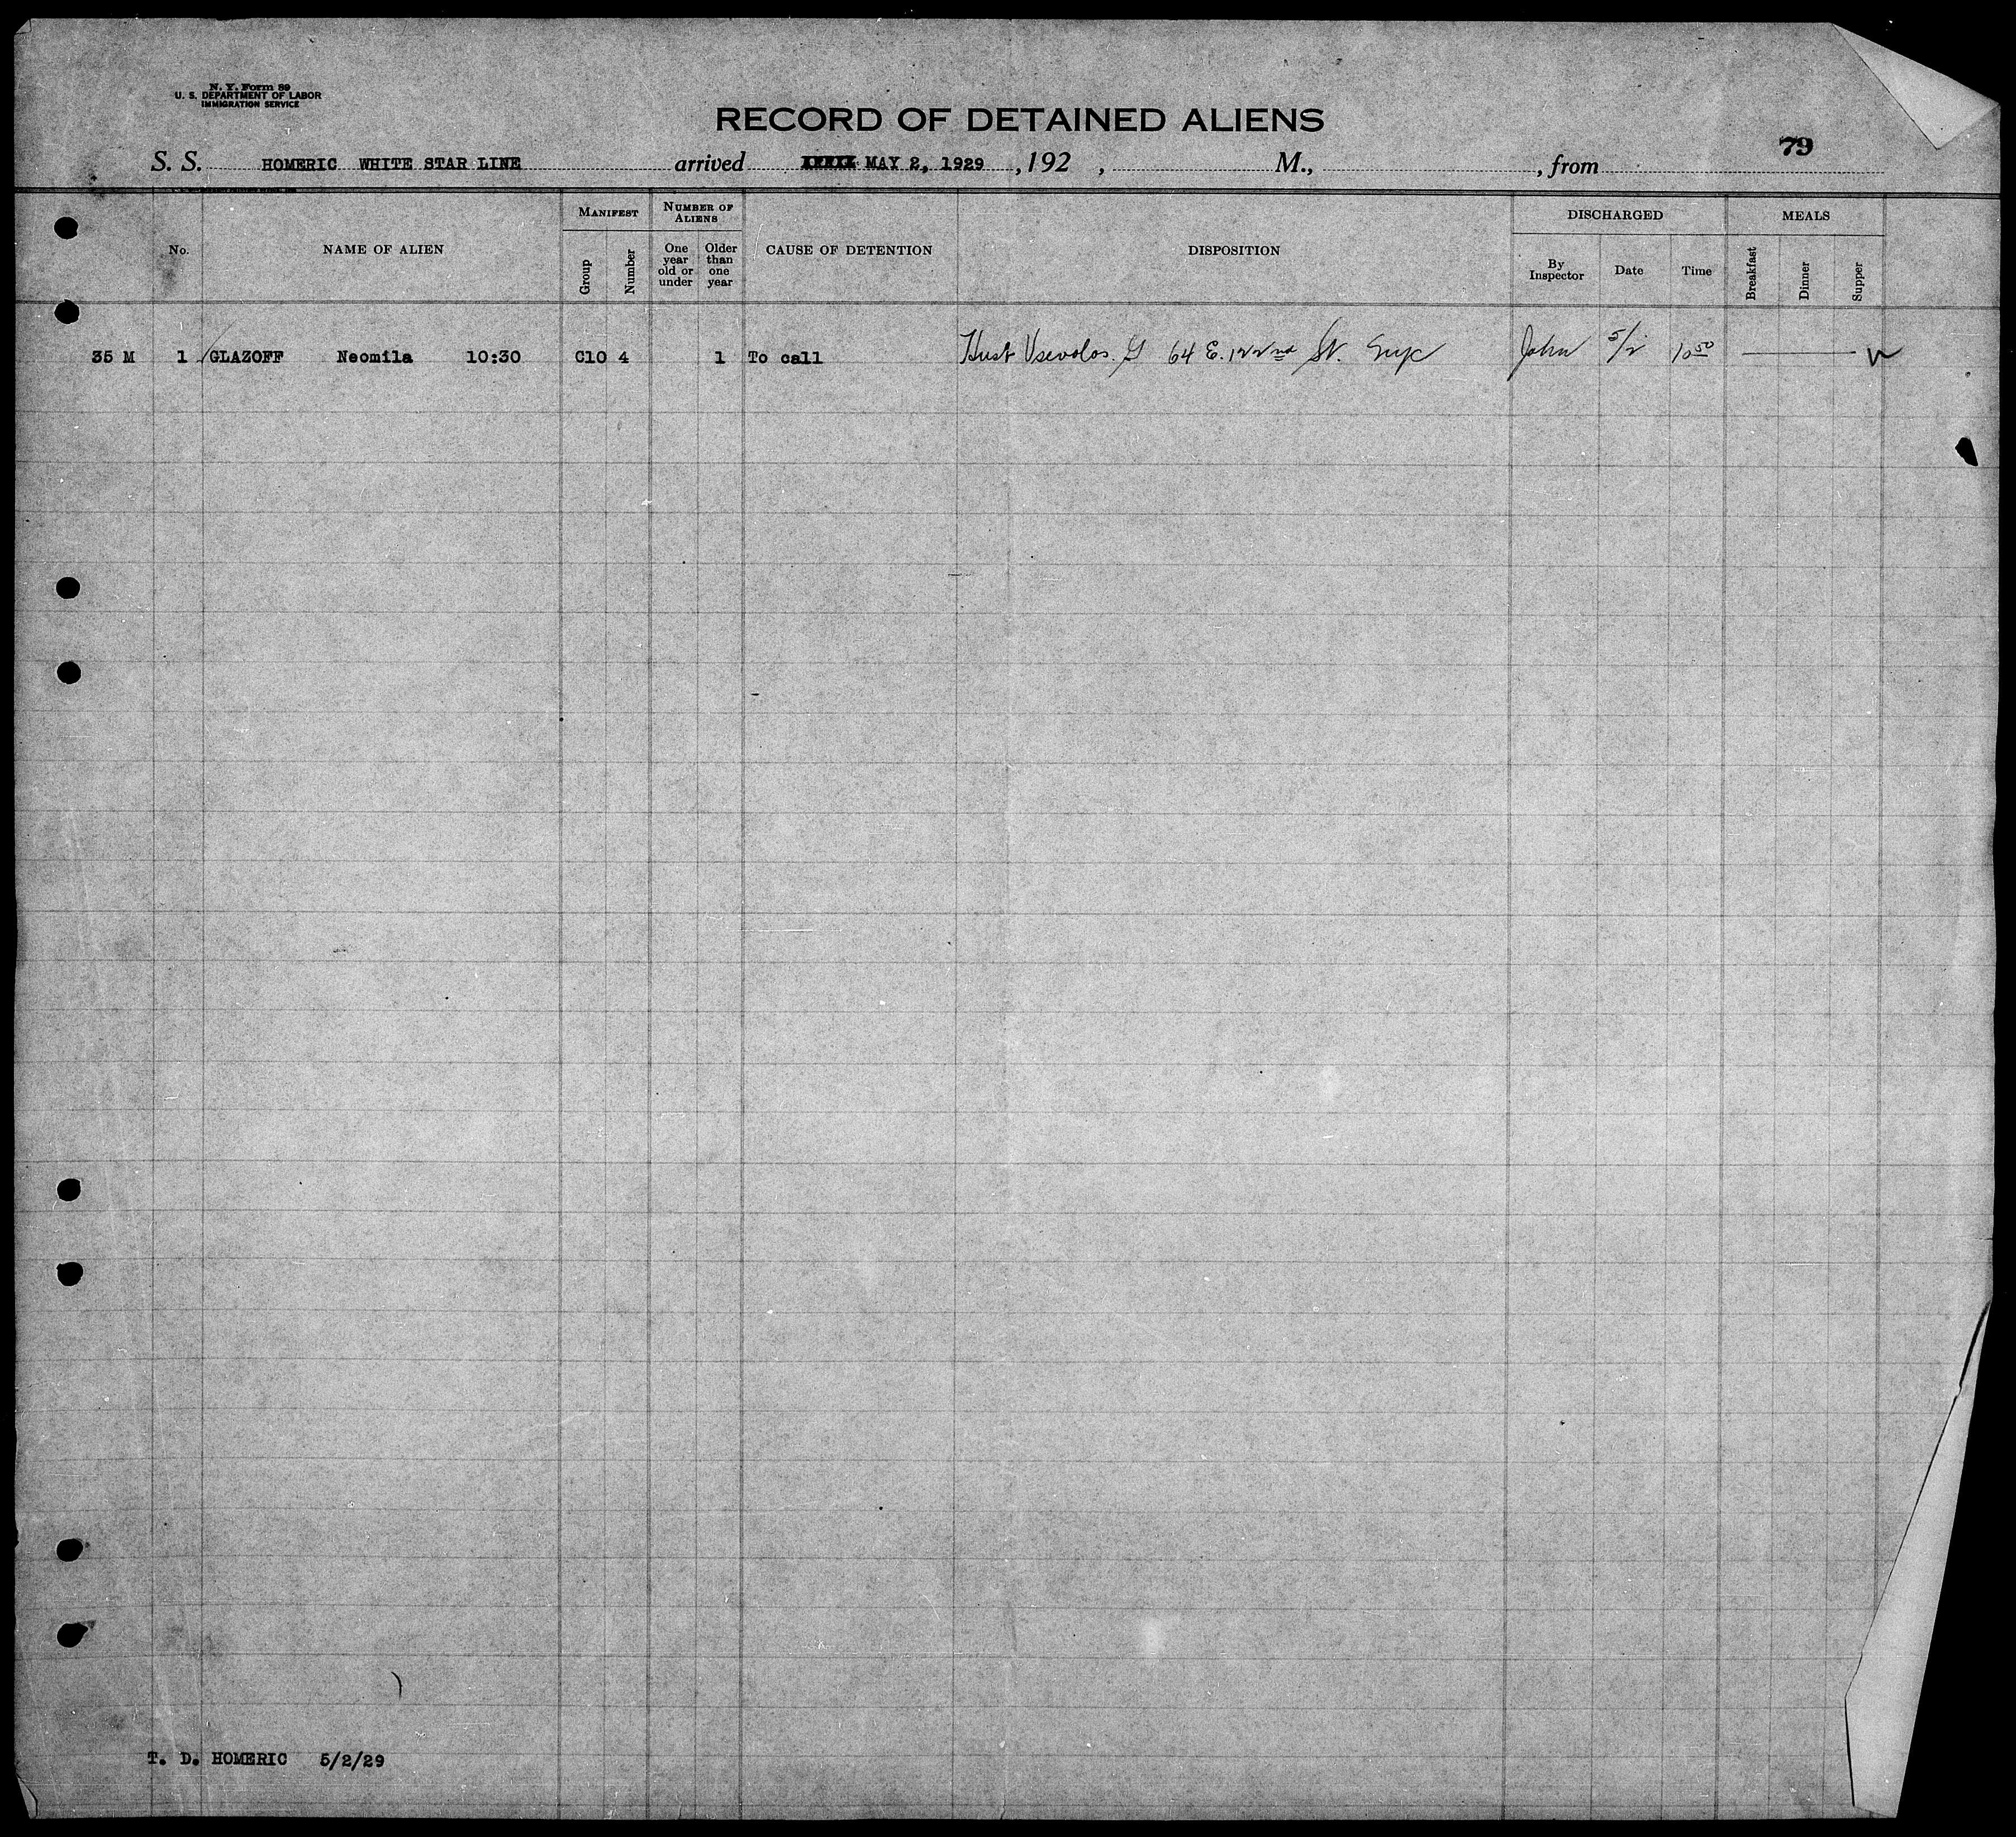 N. Y. Form 89
U. S. DEPARTMENT OF LABOR
IMMIGRATION SERVICE
RECORD OF DETAINED ALIENS
79
S. S. HOMERIC WHITE STAR LINE arrived MAY 2, 1929 , 192 , M., , from
No. NAME OF ALIEN MANIFEST Group Number NUMBER OF ALIENS One year old or under Older than one year CAUSE OF DETENTION DISPOSITION DISCHARGED By Inspector Date Time MEALS Breakfast Dinner Supper
35 M 1 GLAZOFF Neomila 10:30 C10 4 1 To call Hust Vsevolos. G 64 E. 122nd St. NYC John 5/2 10 50
T. D. HOMERIC 5/2/29